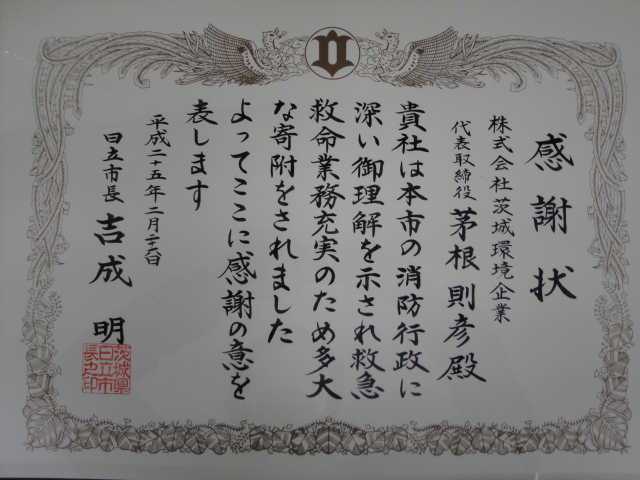 感謝状
株式会社茨城環境企業
代表取締役 茅根則彦殿
貴社は本市の消防行政に
深い御理解を示され救急
救命業務充実のため多大
な寄附をされました
よってここに感謝の意を
表します
平成二十五年二月二十六日
日立市長 吉成明
茨城県
日立市
長之印